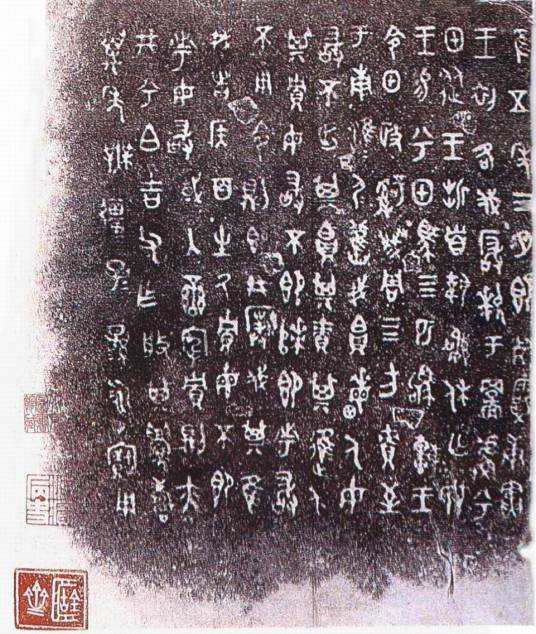 隹五年三月既死霸庚寅
王初各伐玁狁于䣙𠭯兮
甲從王折首執訊休亡敃
王易兮甲馬四匹駒車王
令甲政𤔲成周四方責至
于南淮尸淮尸舊我帛畮人毋
敢不出其帛其責其進人
其貯毋敢不即𠂤即市敢
不用令則即井𢦏伐其隹
我者侯百生氒貯毋不即
市毋敢或入蠻宄貯則亦
井兮白吉父乍般其眉壽
萬年無疆子子孫孫永寶用